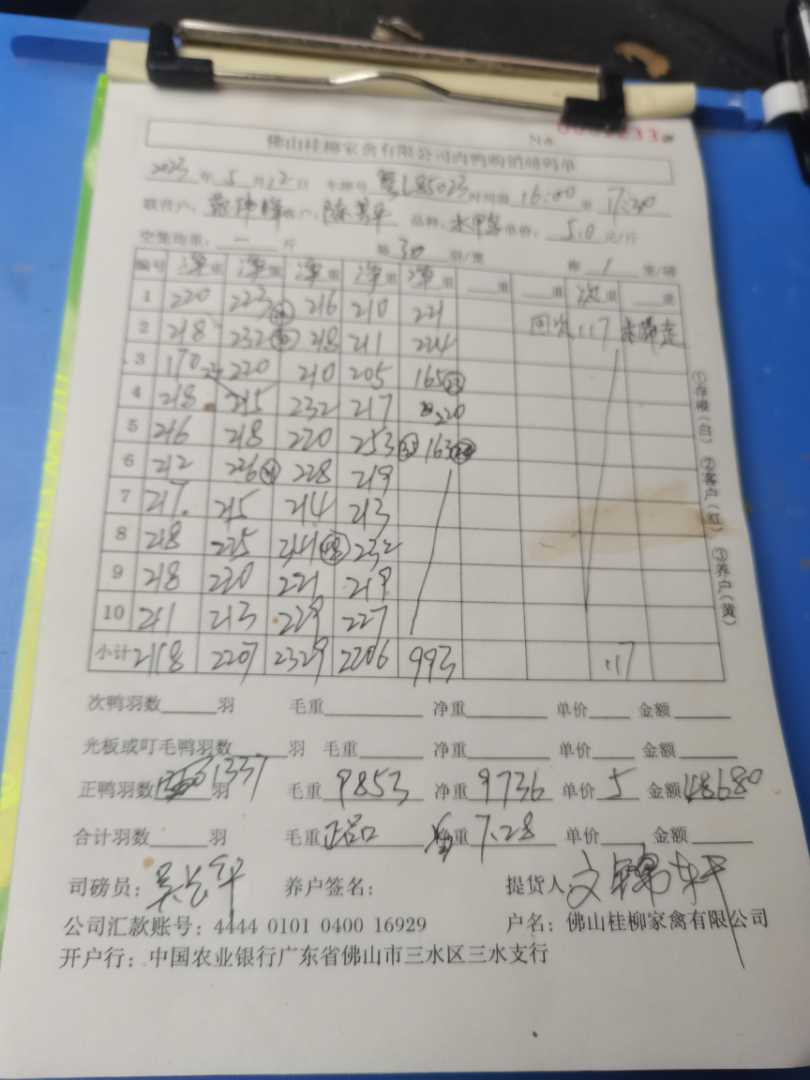 佛山桂柳家禽有限公司肉鸭购销磅码单
2023 年 5 月 12 日 车牌号 粤L85023 时间 16:00 至 17:20
联营户: 客户: 陈 品种: 水鸭 单价: 5.0 元/斤
空笼均重: — 斤 每 30 称 1 笼/磅
编号 净重 净重 净重 净重 净重 重 重 次重 重
1 220 223 216 210 221
2 218 232 218 211 224 回次 117
3 170 220 210 205 165
4 218 215 232 217 220
5 216 218 220 253 163
6 212 226 228 219
7 217 215 214 213
8 218 225 241 232
9 218 220 221 219
10 211 213 229 227
小计 2118 2207 2329 2206 993 117
次鸭羽数 羽 毛重 净重 单价 金额
光板或叮毛鸭羽数 羽 毛重 净重 单价 金额
正鸭羽数 1337 羽 毛重 9853 净重 9736 单价 5 金额 48680
合计羽数 羽 毛重 正品 净重 7.28 单价 金额
司磅员: 养户签名: 提货人:
公司汇款账号: 4444 0101 0400 16929 户名: 佛山桂柳家禽有限公司
开户行: 中国农业银行广东省佛山市三水区三水支行
①存根(白) ②客户(红) ③养户(黄)